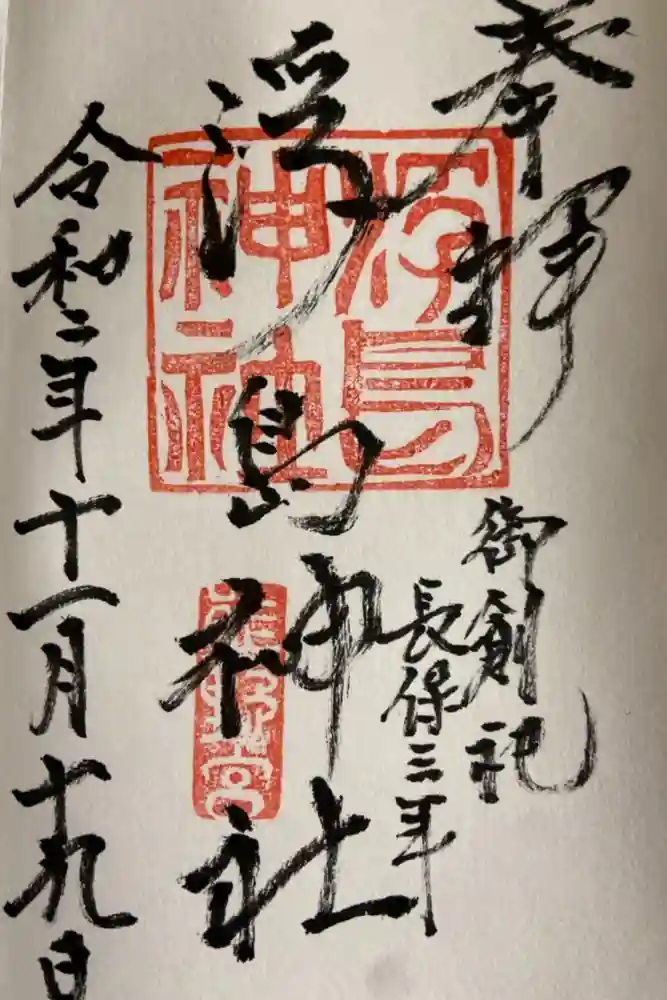 奉拝
御創祀
長保三年
浮島神社
浮島
神社
熊野宮
令和二年十一月十九日